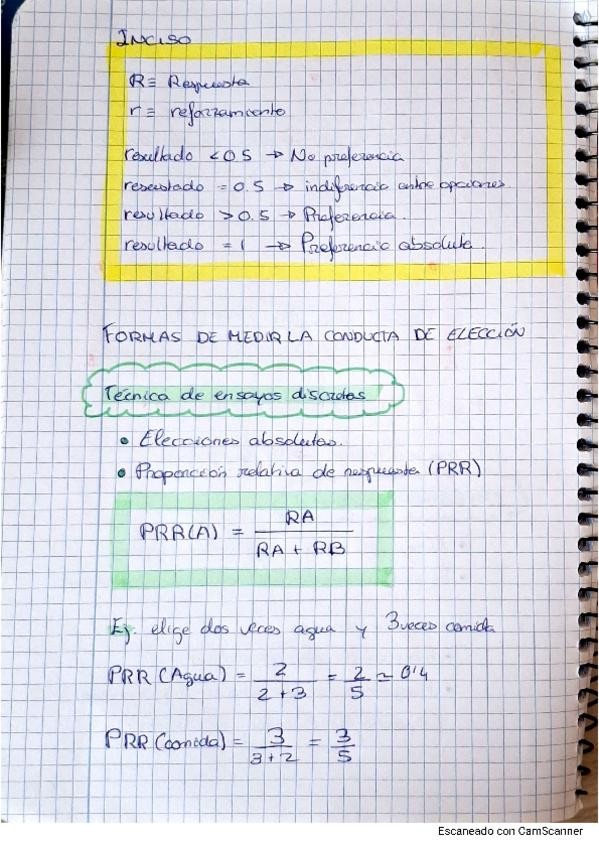 INCISO
R ≡ Respuesta
r ≡ reforzamiento
resultado < 0.5 → No preferencia
resultado = 0.5 → indiferencia entre opciones
resultado > 0.5 → Preferencia.
resultado = 1 → Preferencia absoluta.
FORMAS DE MEDIR LA CONDUCTA DE ELECCIÓN
Técnica de ensayos discretos
• Elecciones absolutas.
• Proporción relativa de respuesta (PRR)
PRR(A) = RA / (RA + RB)
Ej. elige dos veces agua y 3 veces comida
PRR (Agua) = 2 / (2 + 3) = 2/5 ≃ 0'4
PRR (comida) = 3 / (3 + 2) = 3/5
Escaneado con CamScanner